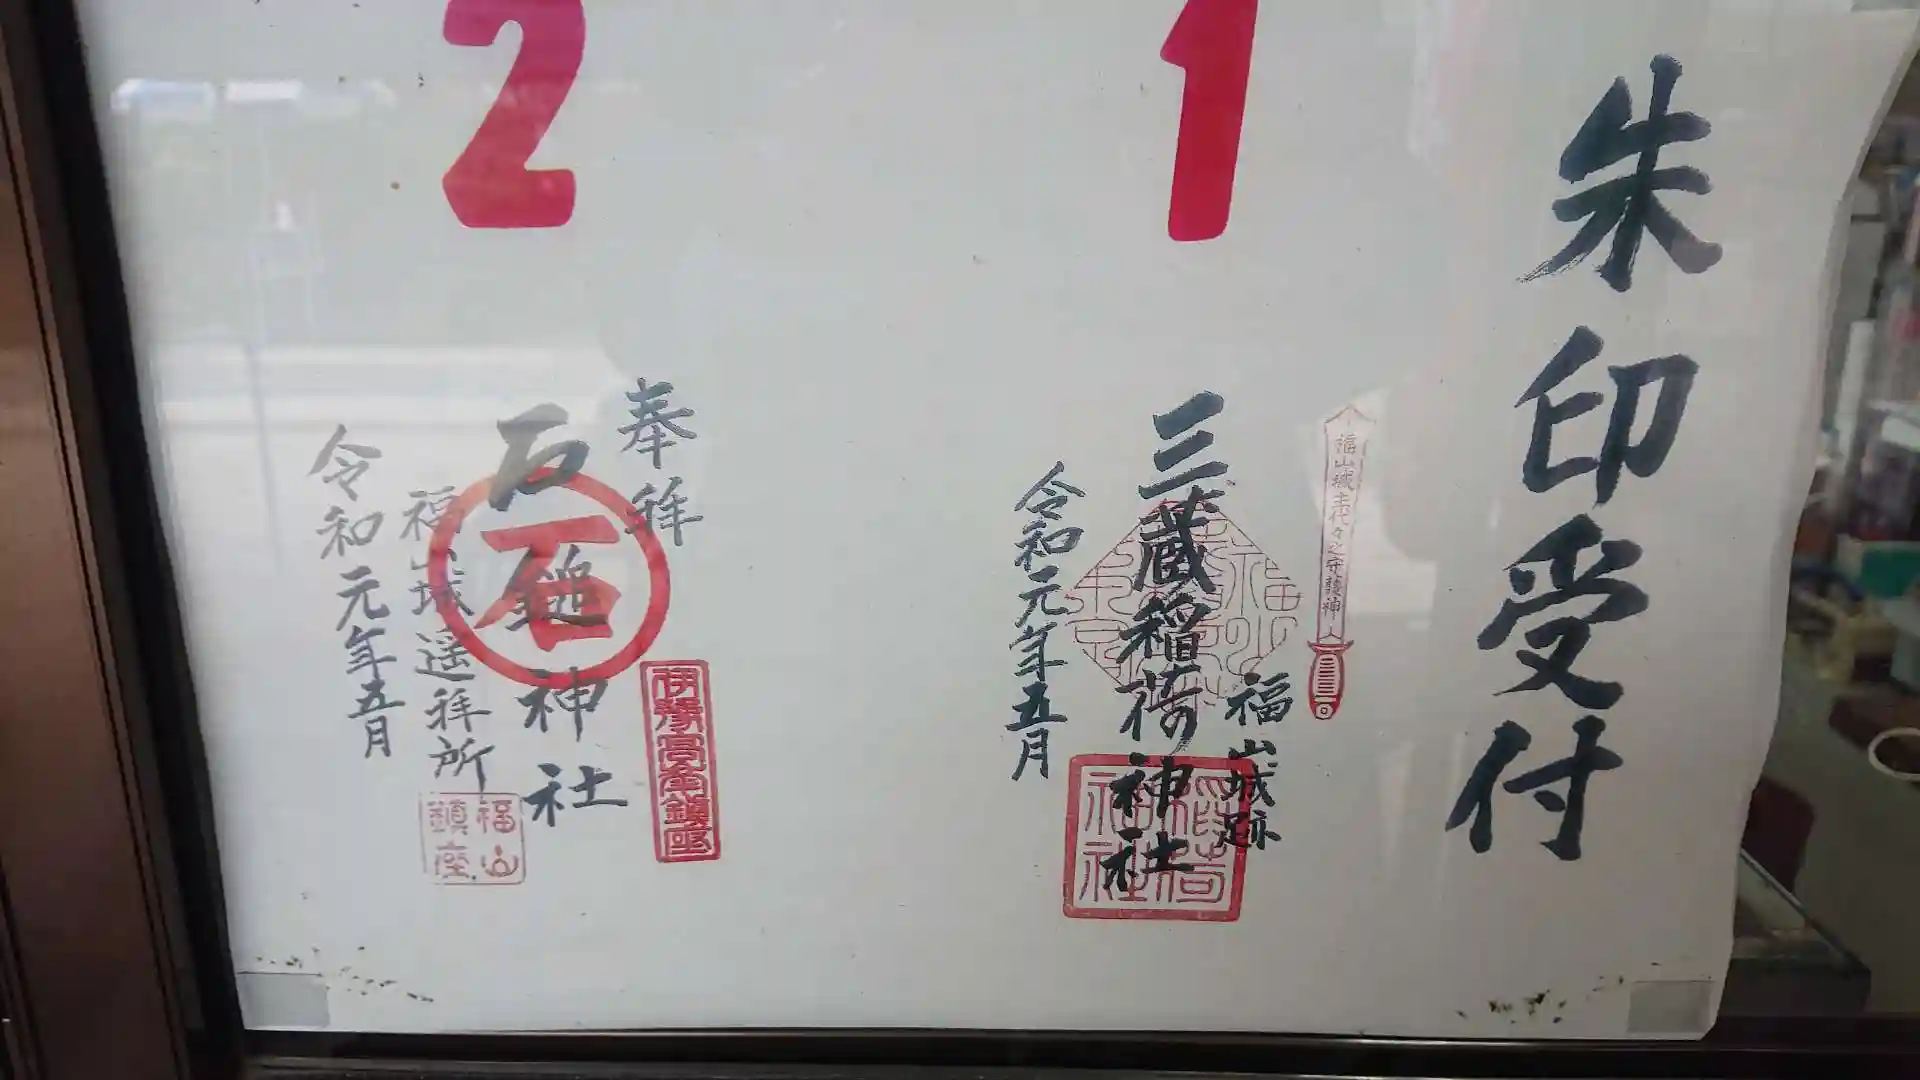 朱印受付
1
福山城主代々之守護神
福山城跡
三蔵稲荷神社
稲荷
神社
令和元年五月
2
奉拝
伊豫高峯鎮座
石鎚神社
石
福山城遥拝所
福山
鎮座
令和元年五月